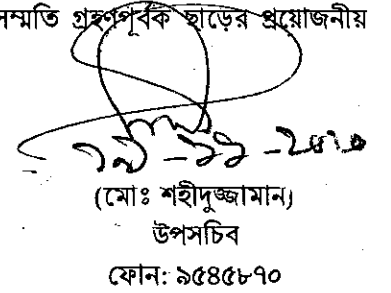 সম্মতি গ্রহণপূর্বক ছাড়ের প্রয়োজনীয়
(মোঃ শহীদুজ্জামান)
উপসচিব
ফোন: ৯৫৪৫৮৭০